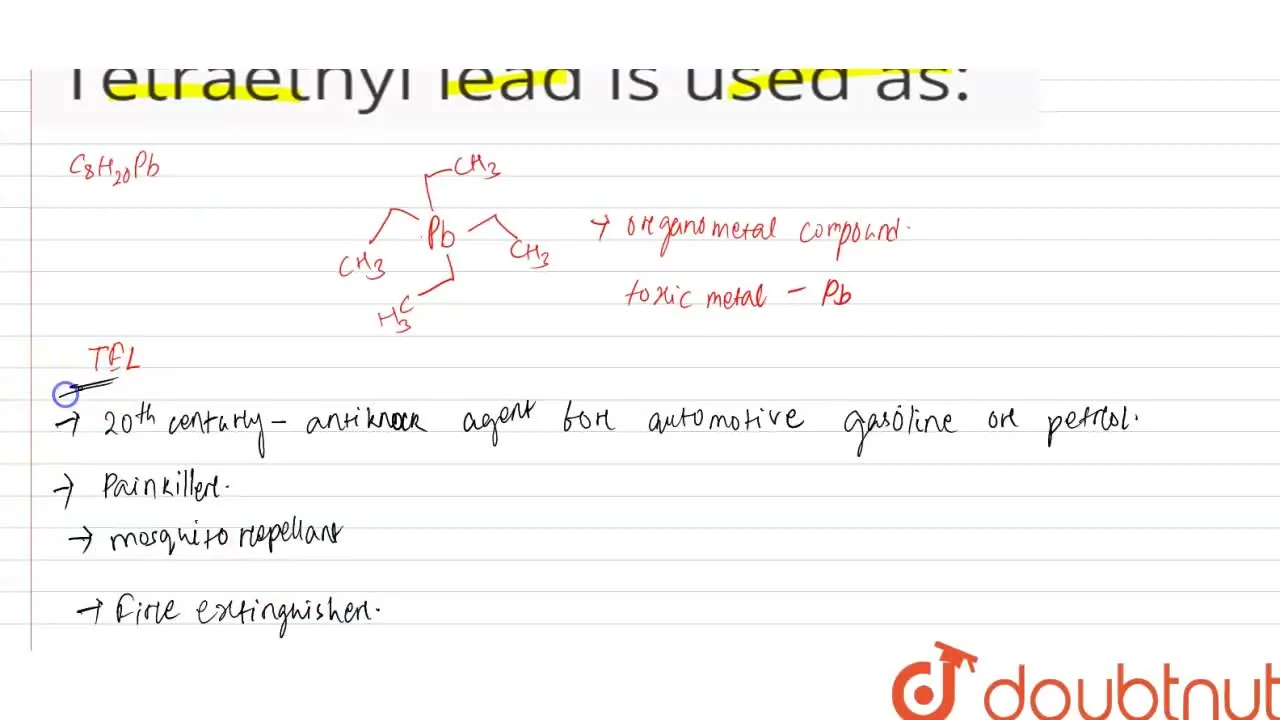 Tetraethyl lead is used as:
C8H20Pb
CH3
Pb
CH3
CH3
H3C
→ organometal compound.
toxic metal - Pb
TEL
→ 20th century - antiknock agent for automotive gasoline or petrol.
→ Painkiller.
→ mosquito repellant
→ Fire extinguisher.
doubtnut